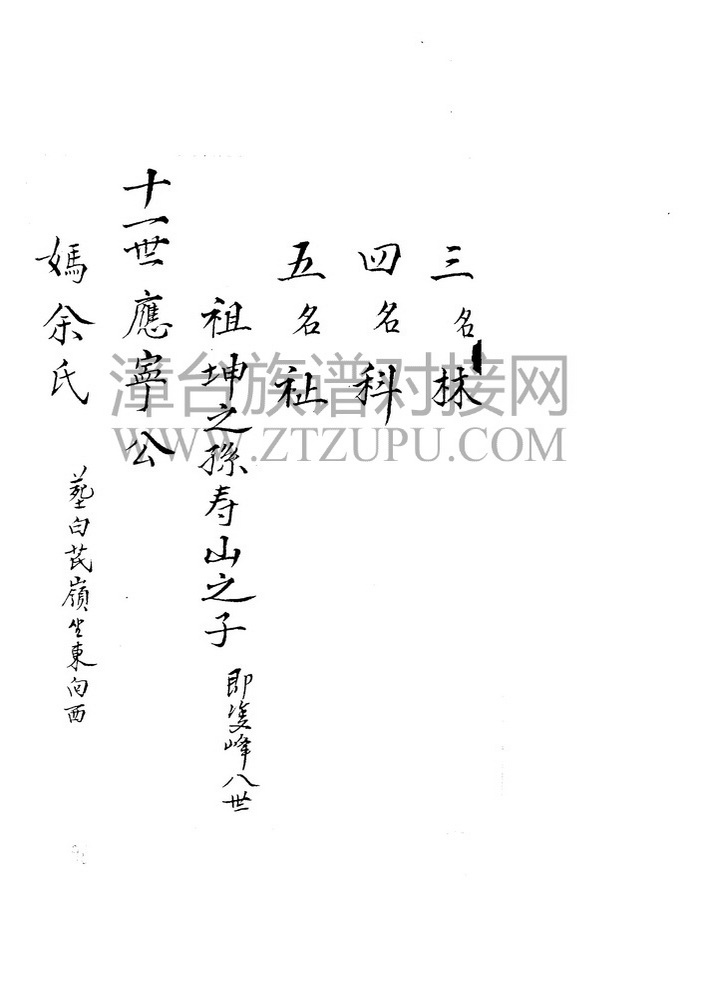 三名林
四名科
五名祉
祖坤之孫寿山之子 即隻峰八世
十一世應寧公
媽余氏 墓白芒嶺坐東向西
漳台族谱对接网
WWW.ZTZUPU.COM